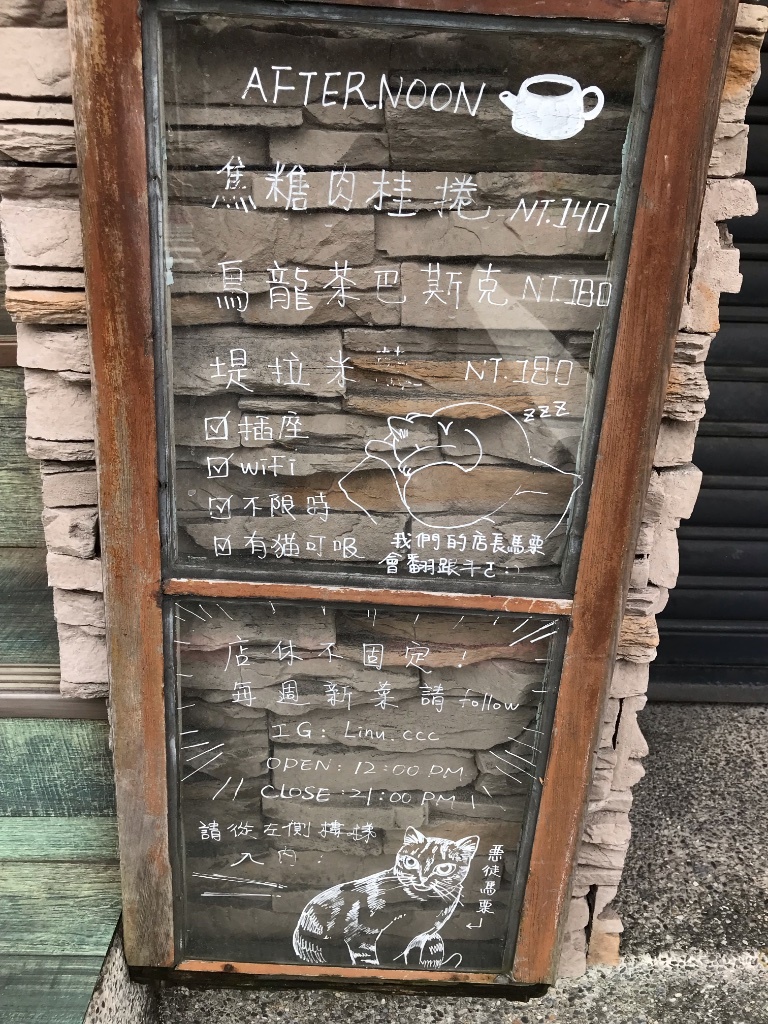 AFTERNOON
焦糖肉桂捲 NT.140
烏龍茶巴斯克 NT.180
堤拉米 NT.180
zzZ
插座
WiFi
不限時
有貓可吸
我們的店長馬栗
會翻跟斗
店休不固定!
每週新菜請 follow
IG: Linu.ccc
OPEN: 12:00 PM
CLOSE: 21:00 PM
請從左側樓梯
入內:
惡徒馬栗